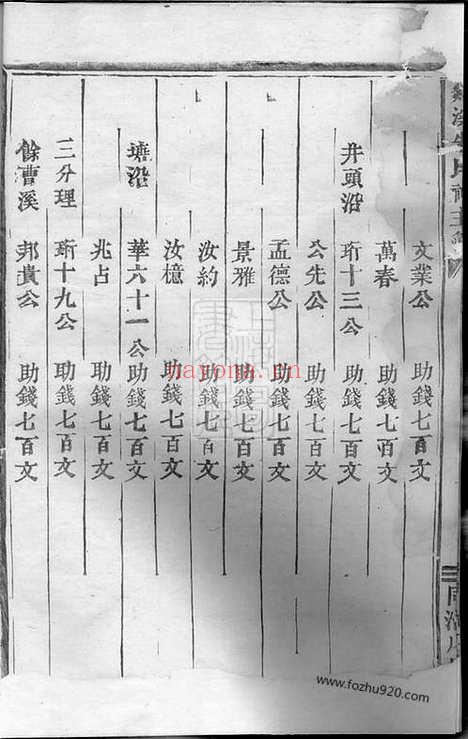 文業公 助錢七百文
萬春 助錢七百文
井頭沿 珩十三公 助錢七百文
公先公 助錢七百文
孟德公 助錢七百文
景雅 助錢七百文
汝約 助錢七百文
汝檍 助錢七百文
塘沿 華六十一公 助錢七百文
兆占 助錢七百文
三分理 珩十九公 助錢七百文
餘曹溪 邦貴公 助錢七百文
nayona.cn
www.fozhu920.com